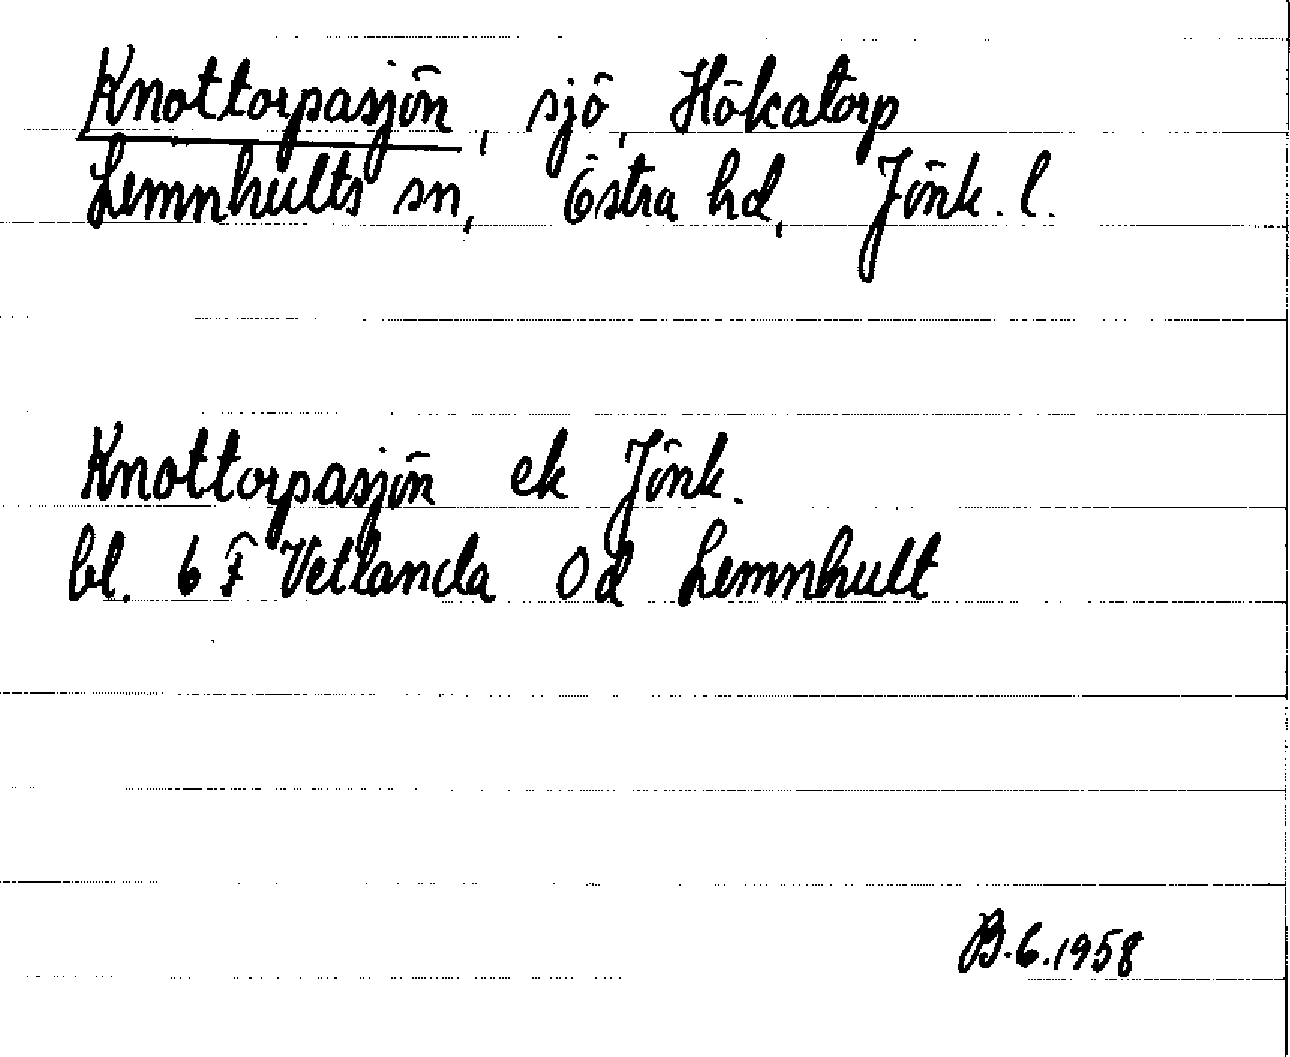 Knottorpasjön, sjö, Hökatorp
Lemnhults sn, Östra hd, Jönk. l.
Knottorpasjön ek Jönk.
bl. 6 F Vetlanda 0d Lemnhult
B.6.1958